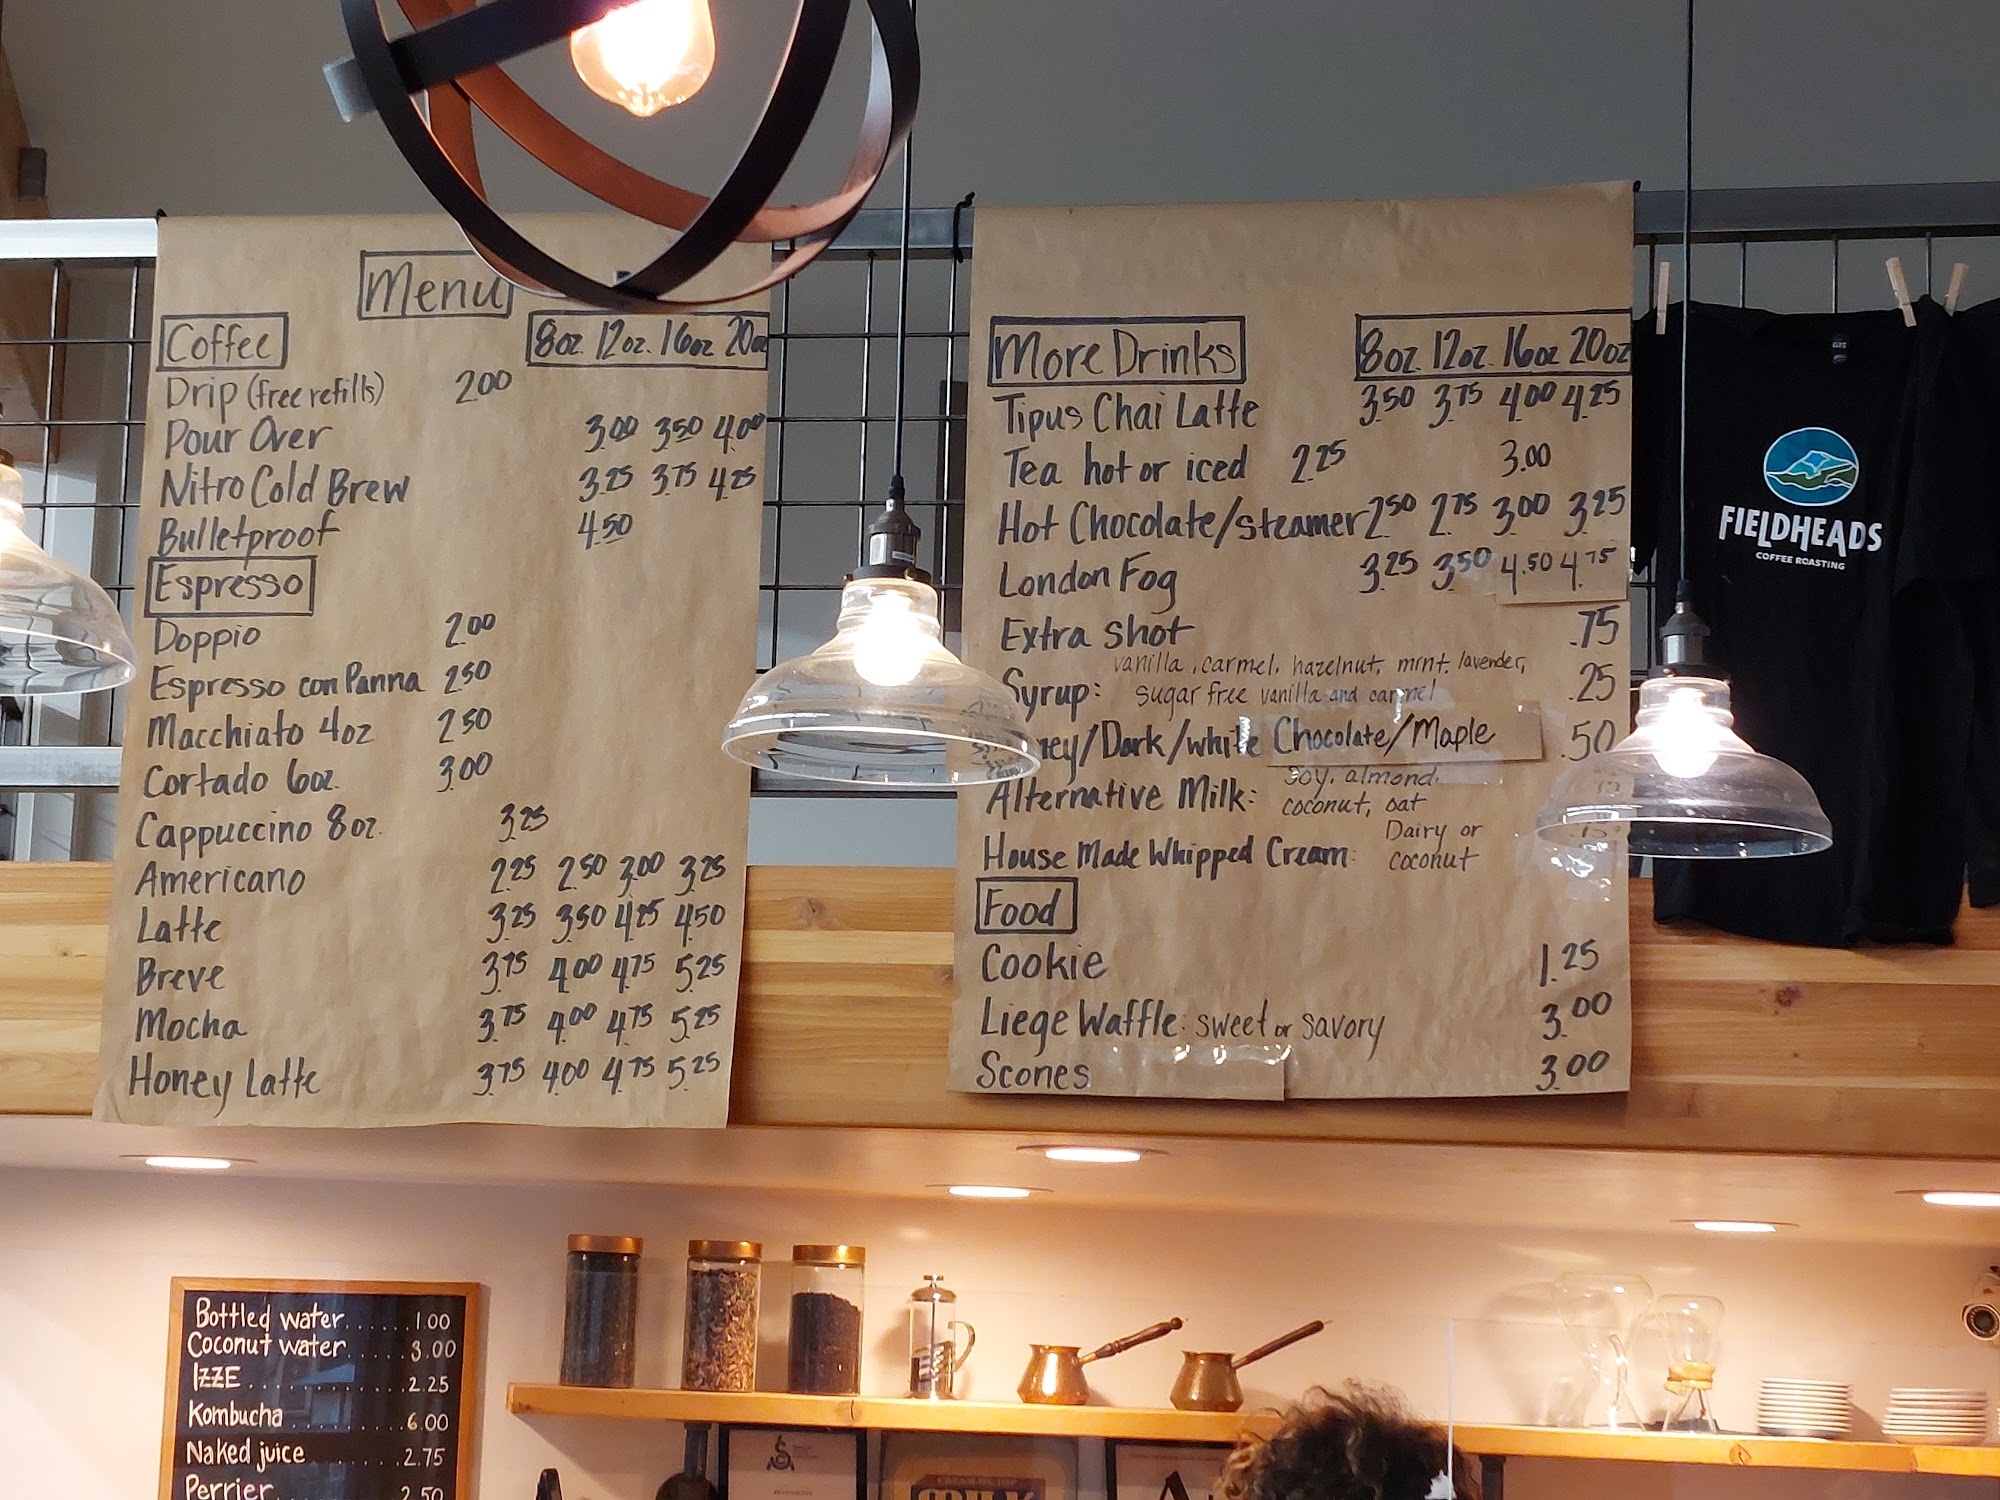 Menu
Coffee 8oz. 12oz. 16oz 20oz
Drip (free refills) 2.00
Pour Over 3.00 3.50 4.00
Nitro Cold Brew 3.25 3.75 4.25
Bulletproof 4.50
Espresso
Doppio 2.00
Espresso con Panna 2.50
Macchiato 4oz 2.50
Cortado 6oz. 3.00
Cappuccino 8oz. 3.25
Americano 2.25 2.50 3.00 3.25
Latte 3.25 3.50 4.25 4.50
Breve 3.75 4.00 4.75 5.25
Mocha 3.75 4.00 4.75 5.25
Honey Latte 3.75 4.00 4.75 5.25
More Drinks 8oz. 12oz. 16oz 20oz
Tipus Chai Latte 3.50 3.75 4.00 4.25
Tea hot or iced 2.25 3.00
Hot Chocolate/steamer 2.50 2.75 3.00 3.25
London Fog 3.25 3.50 4.50 4.75
Extra shot .75
vanilla, carmel, hazelnut, mint, lavender,
Syrup: sugar free vanilla and carmel .25
/Dark/white Chocolate/Maple .50
Alternative Milk: soy, almond,
coconut, oat
House Made Whipped Cream: Dairy or
coconut
Food
Cookie 1.25
Liege Waffle: sweet or savory 3.00
Scones 3.00
FIELDHEADS
COFFEE ROASTING
Bottled water......1.00
Coconut water.....3.00
IZZE..............2.25
Kombucha..........6.00
Naked juice.......2.75
Perrier...2.50
MILK